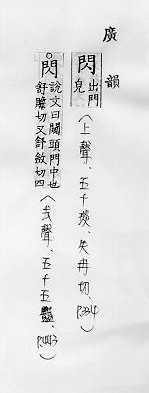 廣韻
閃 出門皃(上聲、五十琰、失冉切、P334)
閃 說文曰闚頭門中也舒贍切又舒斂切四(去聲、五十五豔、P443)